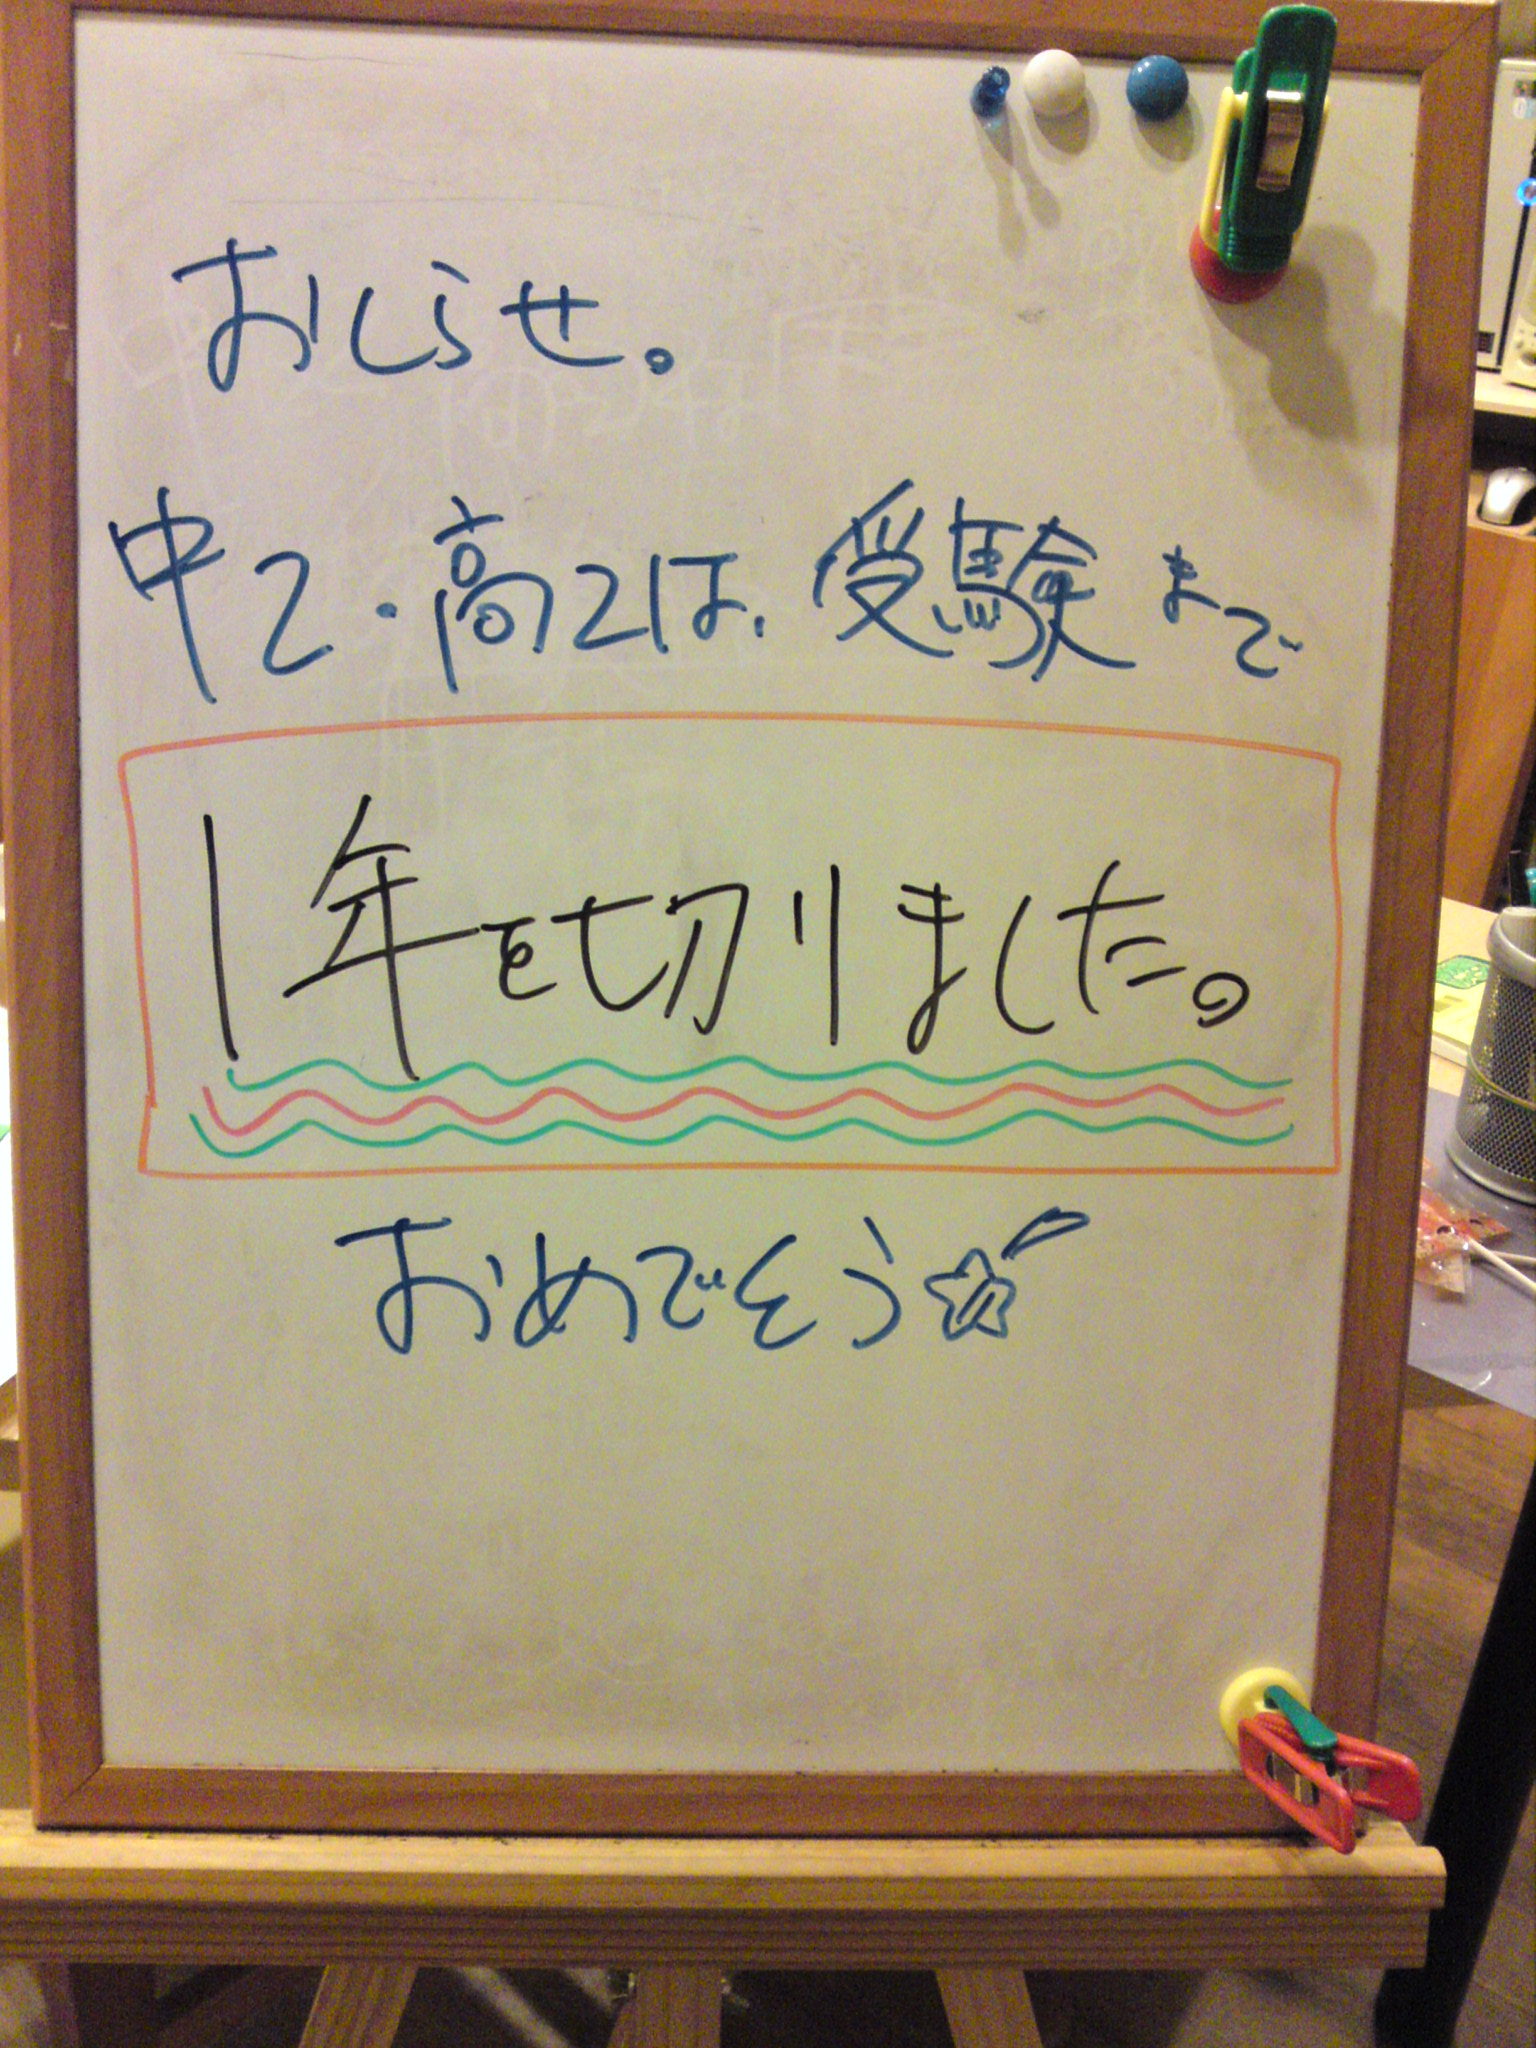 おしらせ。
中2・高2は、受験まで
1年を切りました。
おめでそう☆